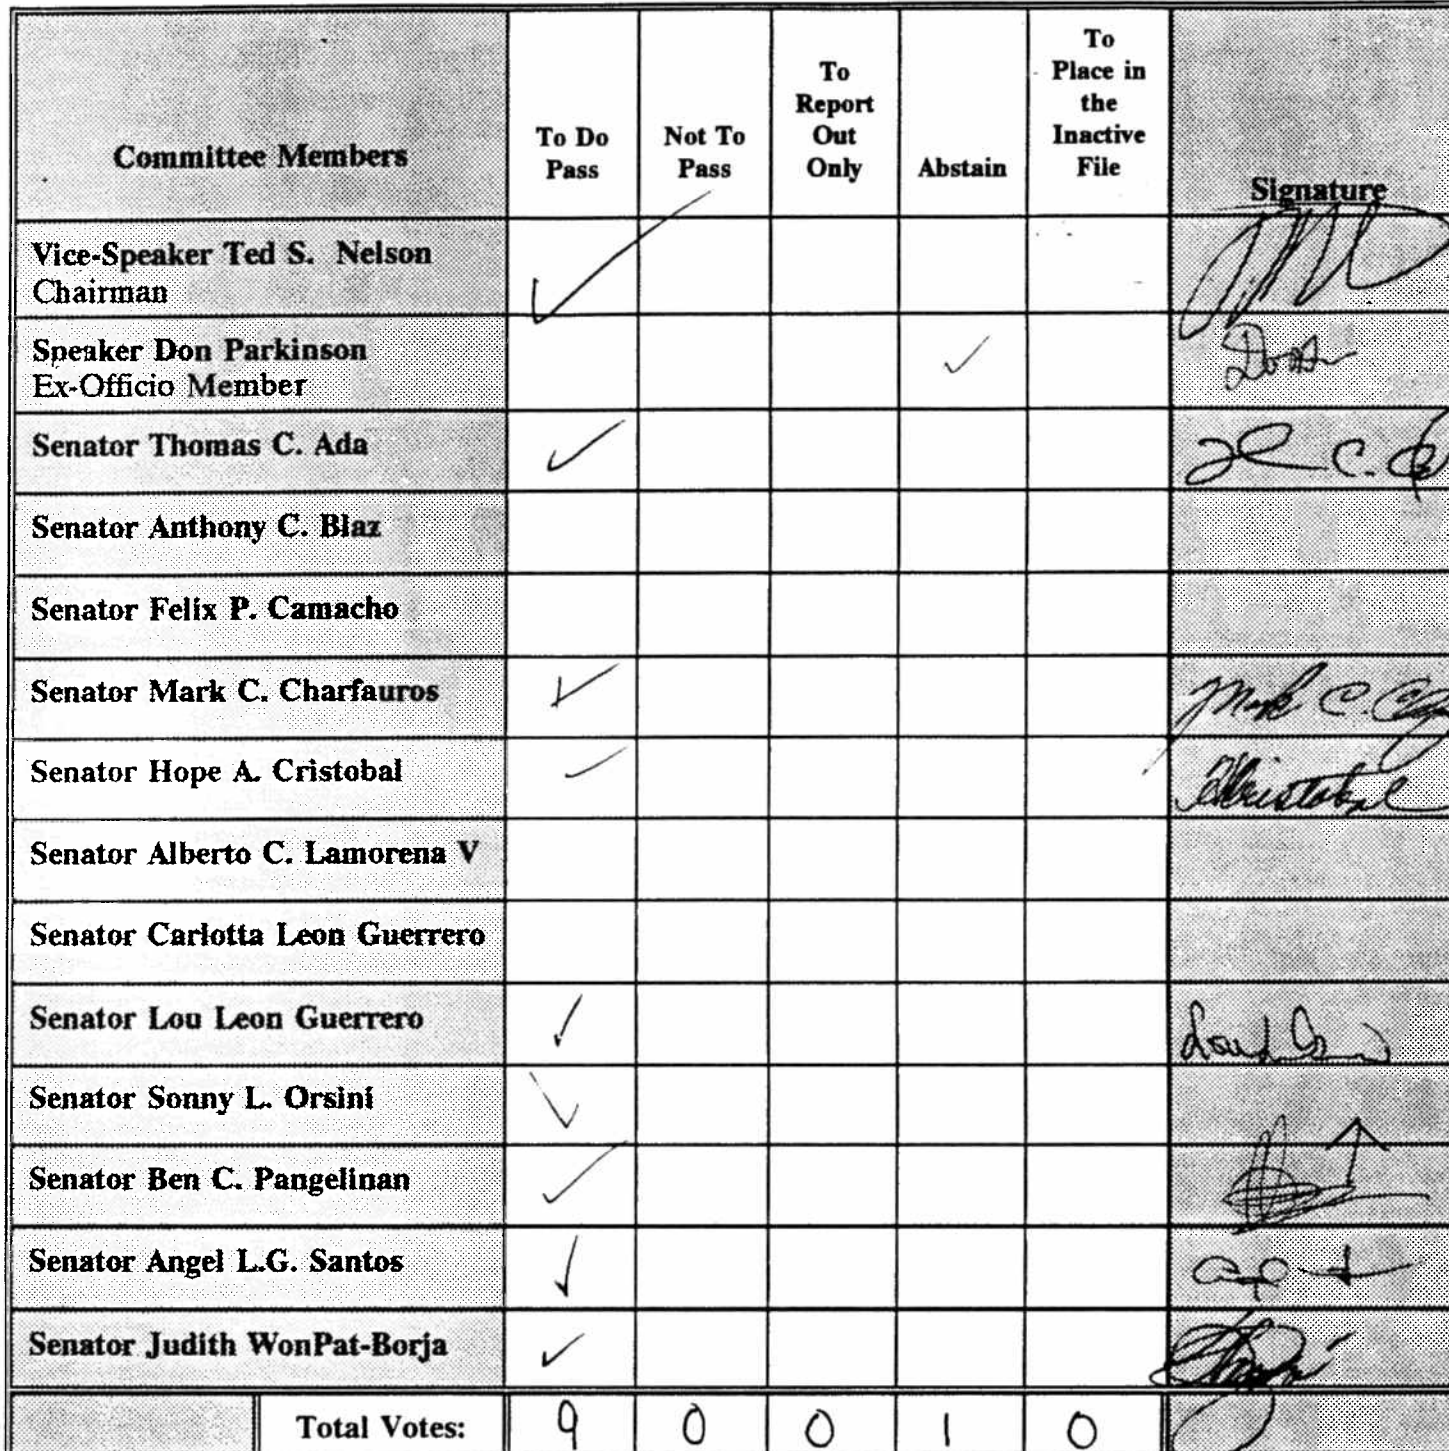 Committee Members
To Do
Pass
Not To
Pass
To
Report
Out
Only
Abstain
To
Place in
the
Inactive
File
Signature
Vice-Speaker Ted S. Nelson
Chairman
Speaker Don Parkinson
Ex-Officio Member
Senator Thomas C. Ada
Senator Anthony C. Blaz
Senator Felix P. Camacho
Senator Mark C. Charfauros
Senator Hope A. Cristobal
Senator Alberto C. Lamorena V
Senator Carlotta Leon Guerrero
Senator Lou Leon Guerrero
Senator Sonny L. Orsini
Senator Ben C. Pangelinan
Senator Angel L.G. Santos
Senator Judith WonPat-Borja
Total Votes: 9 0 0 1 0